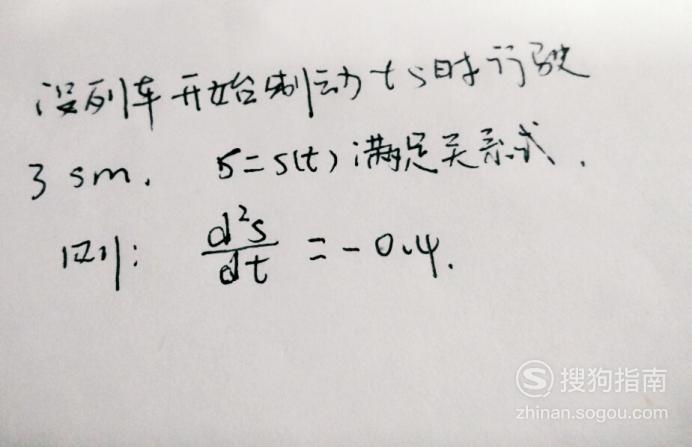 设列车开始制动 t s时行驶
了 sm. S=s(t) 满足关系式.
则: d²s/dt = -0.4.
S 搜狗指南
zhinan.sogou.com